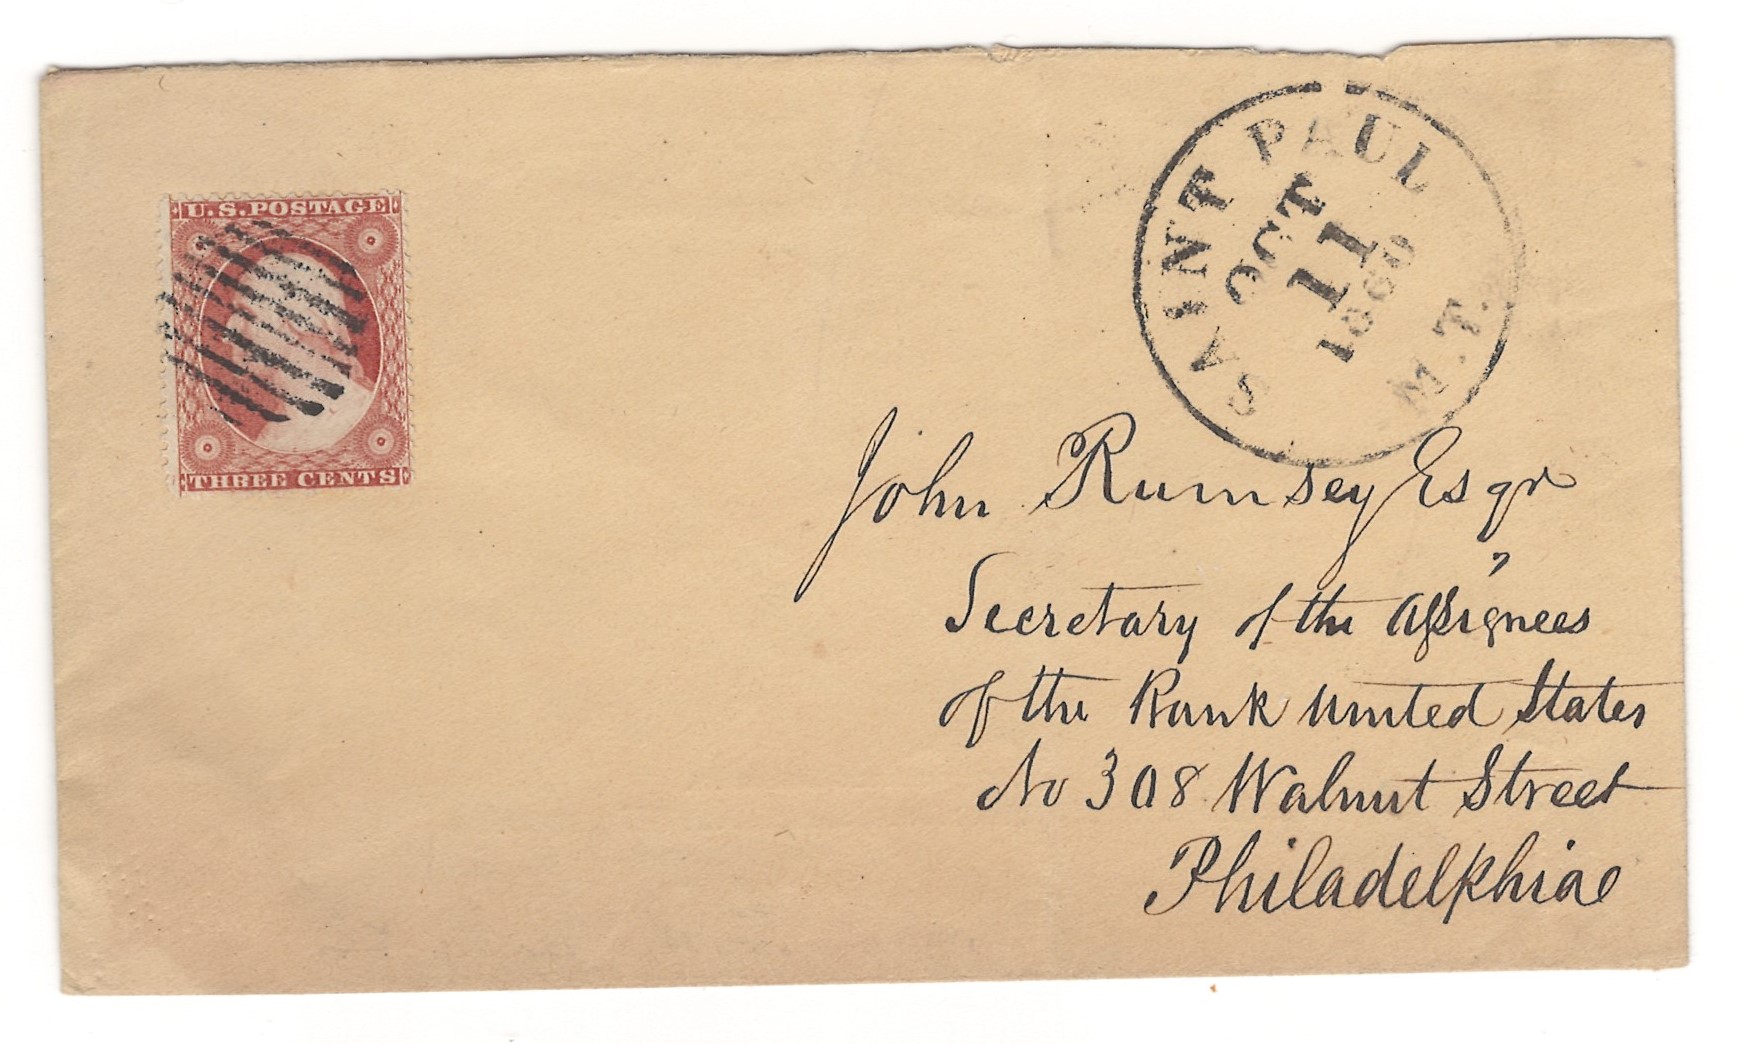 U.S. POSTAGE
THREE CENTS
SAINT PAUL
OCT
11
1860
M.T.
John Rumsey Esqr
Secretary of the Assignees
of the Bank United States
No 308 Walnut Street
Philadelphia